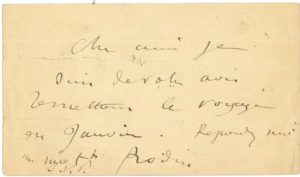 Cher ami je
suis de votre avis
remettons le voyage
en Janvier. Repondez moi
un mot Rodin
S.V.P.